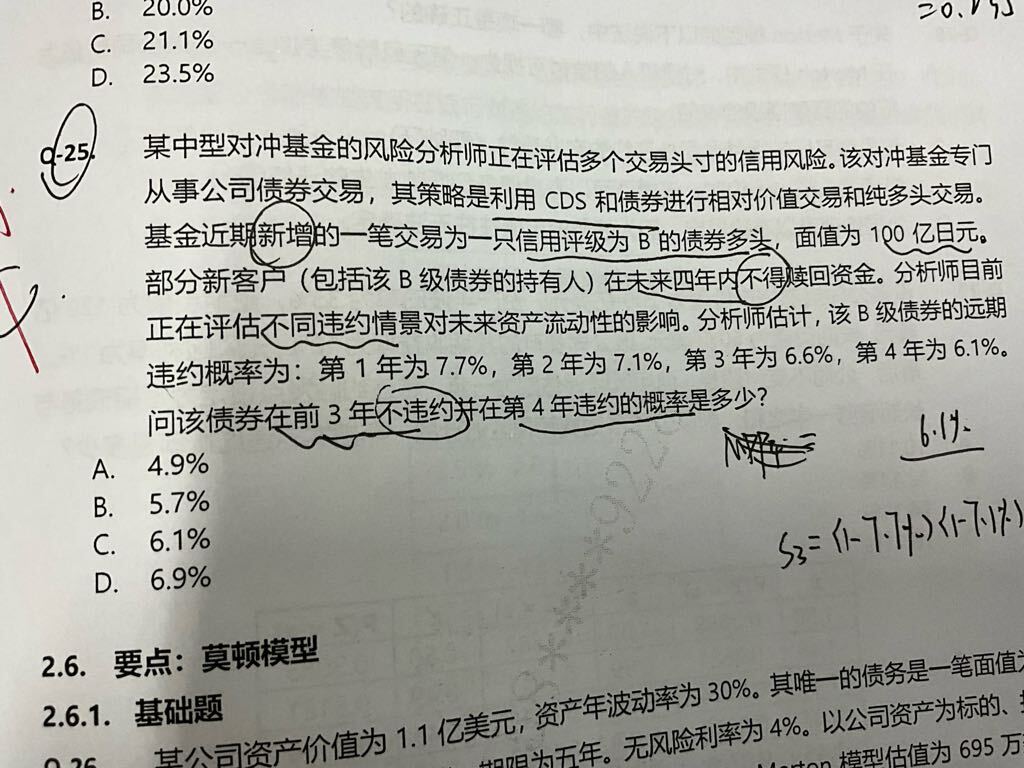 =0.
B. 20.0%
C. 21.1%
D. 23.5%
Q-25.
某中型对冲基金的风险分析师正在评估多个交易头寸的信用风险。该对冲基金专门
从事公司债券交易，其策略是利用 CDS 和债券进行相对价值交易和纯多头交易。
基金近期新增的一笔交易为一只信用评级为 B 的债券多头，面值为 100 亿日元。
部分新客户（包括该 B 级债券的持有人）在未来四年内不得赎回资金。分析师目前
正在评估不同违约情景对未来资产流动性的影响。分析师估计，该 B 级债券的远期
违约概率为：第 1 年为 7.7%，第 2 年为 7.1%，第 3 年为 6.6%，第 4 年为 6.1%。
问该债券在前 3 年不违约并在第 4 年违约的概率是多少？
6.1%
A. 4.9%
B. 5.7%
C. 6.1%
D. 6.9%
S3=(1-7.7%)(1-7.1%)
8****922
2.6. 要点：莫顿模型
2.6.1. 基础题
Q.26 某公司资产价值为 1.1 亿美元，资产年波动率为 30%。其唯一的债务是一笔面值为
期限为五年。无风险利率为 4%。以公司资产为标的、
Merton 模型估值为 695 万